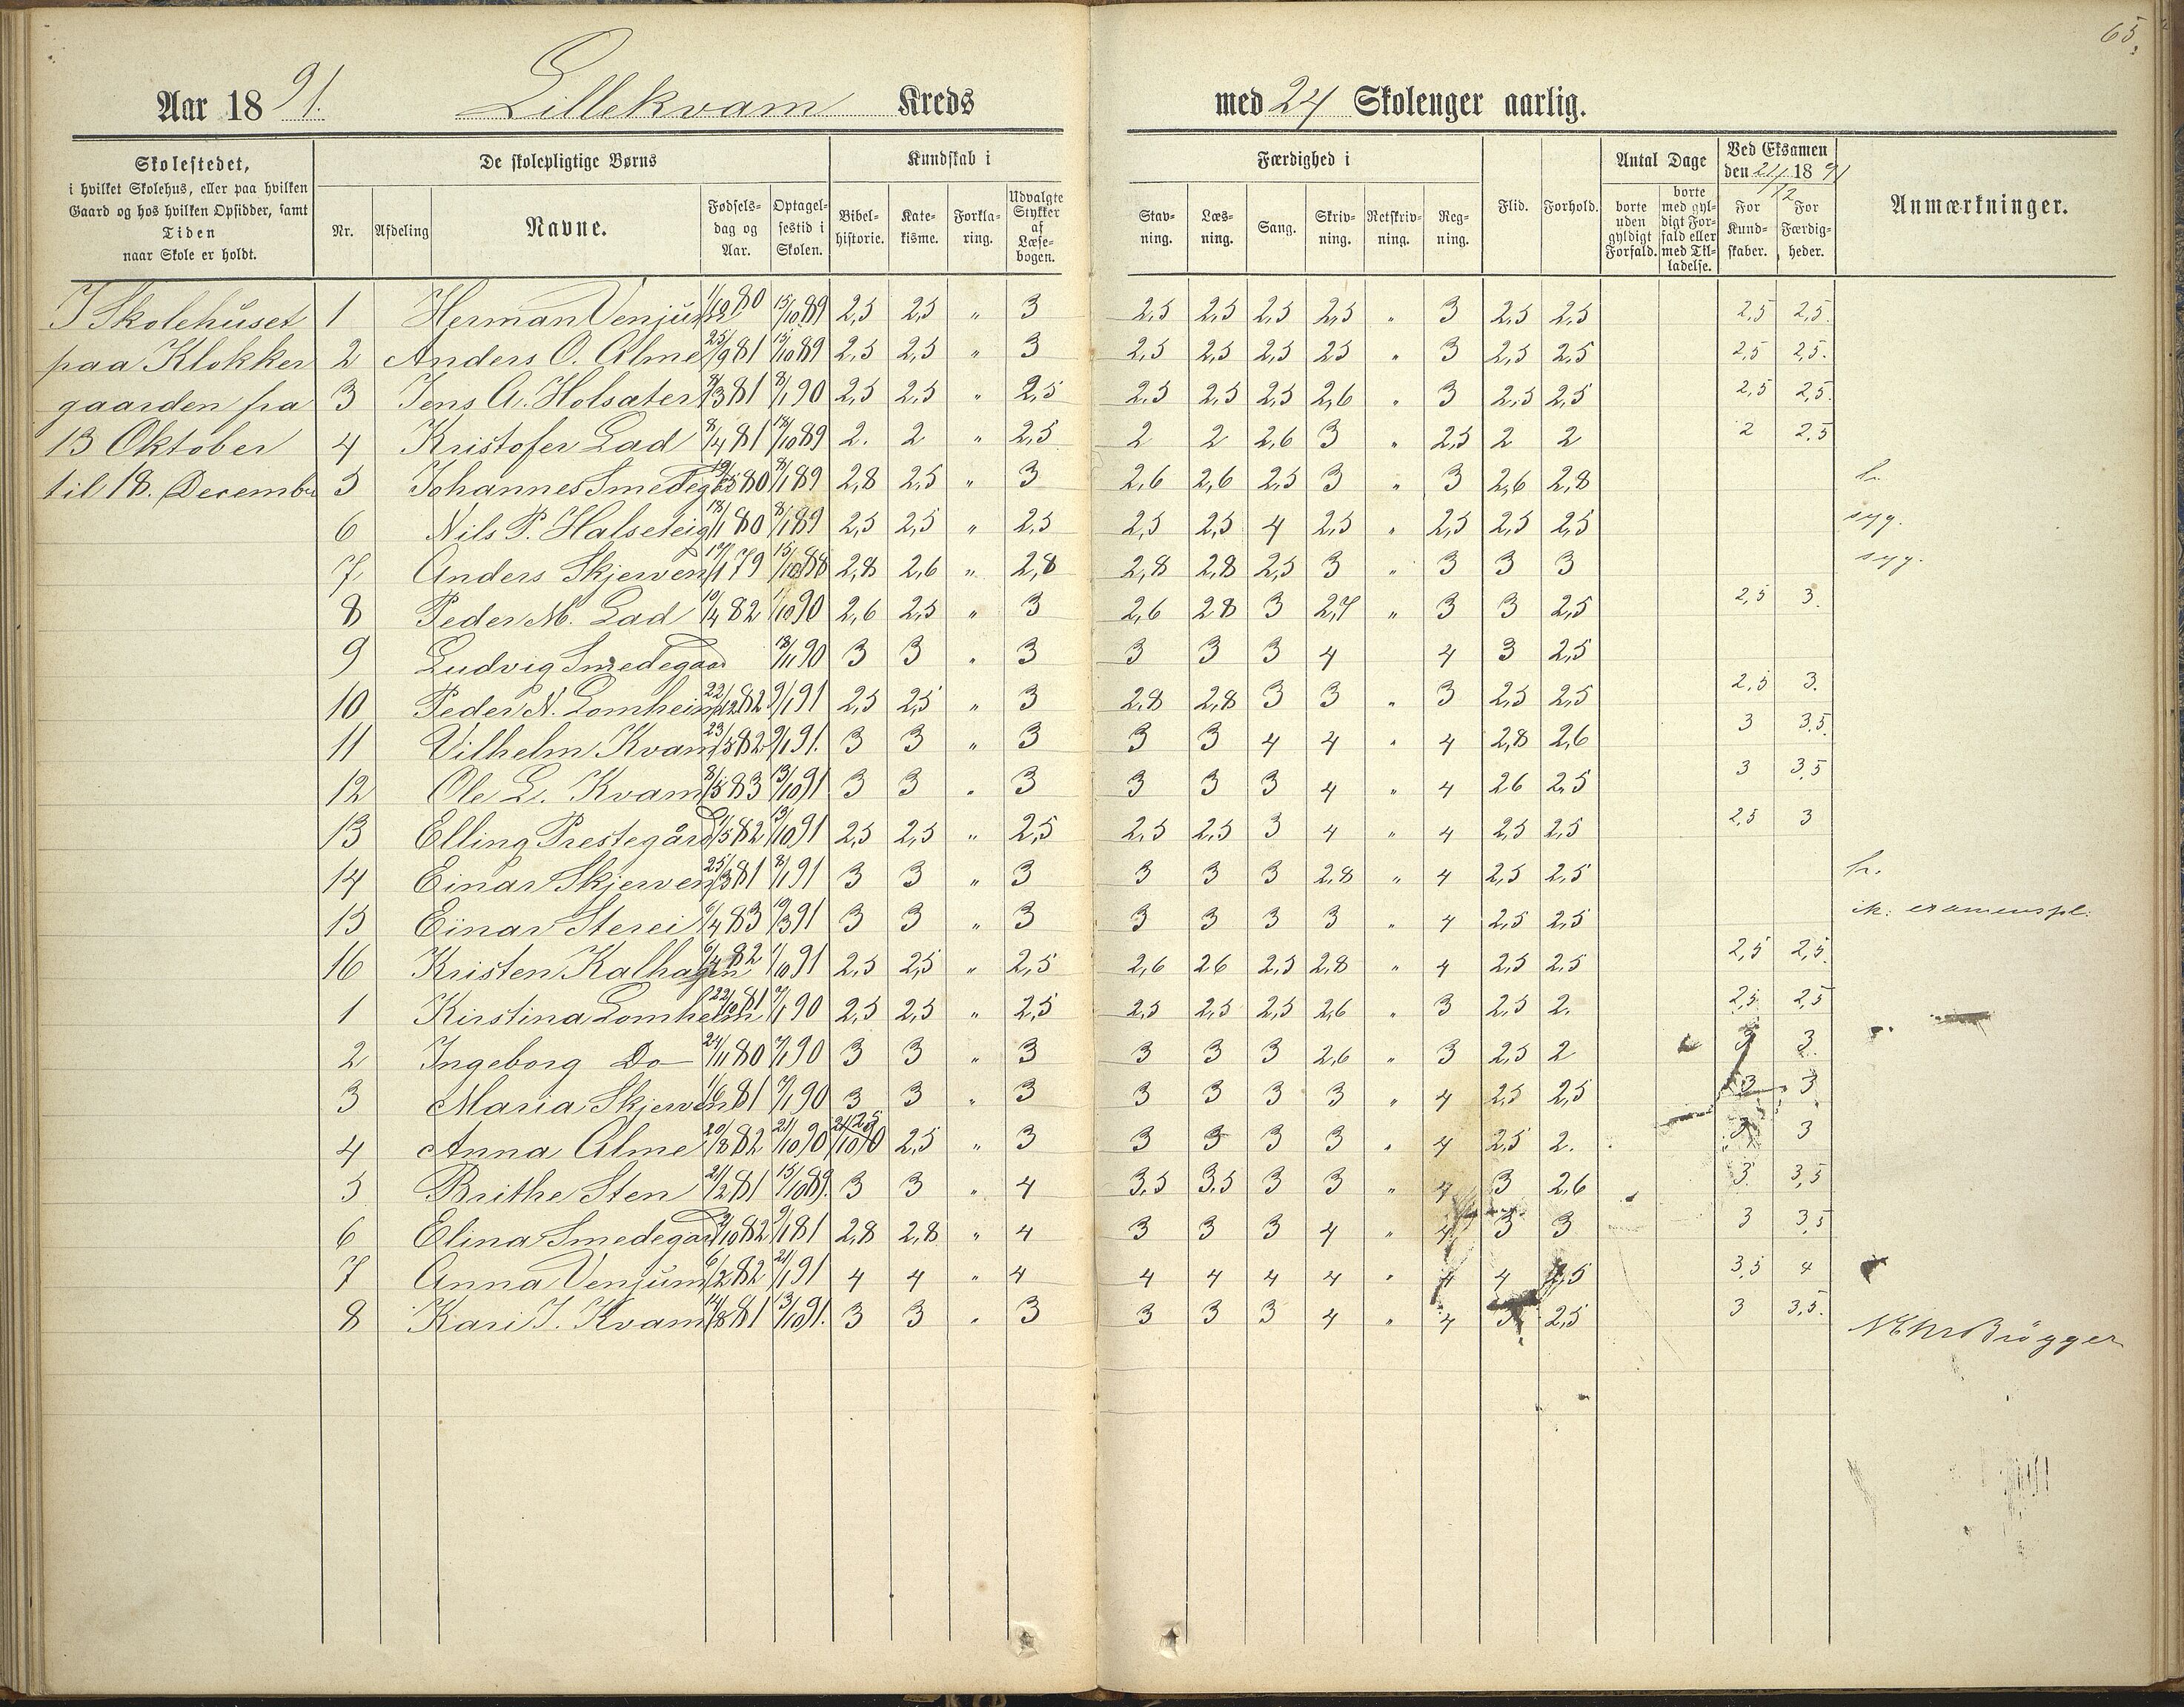 65.
Aar 1891. Lillekvam Kreds med 24 Skolenger aarlig.
Skolestedet, i hvilket Skolehus, eller paa hvilken Gaard og hos hvilken Opsidder, samt Tiden naar Skole er holdt.
De skolepligtige Børns
Nr. Afdeling Navne. Fødsels-dag og Aar. Optagel-sestid i Skolen.
Kundskab i
Bibel-historie. Kate-kisme. Forkla-ring. Udvalgte Stykker af Læse-bogen.
Færdighed i
Stav-ning. Læs-ning. Sang. Skriv-ning. Retskriv-ning. Reg-ning.
Flid. Forhold.
Antal Dage
borte uden gyldigt Forfald. borte med gyl-digt For-fald eller med Til-ladelse.
Ved Eksamen den 21/12 1891
For Kund-skaber. For Færdig-heder.
Anmærkninger.
I Skolehuset
paa Klokker
gaarden fra
13 Oktober
til 18. Decembr
1 Herman Venjum 1/12 80 15/10 89 2,5 2,5 " 3 2,5 2,5 2,5 2,5 " 3 2,5 2,5 2,5 2,5.
2 Anders O. Alme 25/9 81 15/10 89 2,5 2,5 " 3 2,5 2,5 2,5 25 " 3 2,5 2,5 2,5 2,5.
3 Jens A. Holsæter 8/3 81 8/1 90 2,5 2,5 " 2,5 2,5 2,5 2,5 2,6 " 3 2,5 2,5 2,5 2,5.
4 Kristofer Lad 8/4 81 18/10 89 2. 2 " 2,5 2 2 2,6 3 " 2,5 2 2 2 2.5
5 Johannes Smedeg 80 8/1 89 2,8 2,5 " 3 2,6 2,6 2,5 3 " 3 2,6 2,8
6 Nils P. Halseteig 18/1 80 8/1 89 2,5 2,5 " 2.5 2,5 2,5 4 2,5 " 2,5 2,5 2,5 syg.
7 Anders Skjerven 17/1 79 15/10 88 2,8 2,6 " 2,8 2,8 2,8 2,5 3 " 3 3 3 syg.
8 Peder M. Lad 10/4 82 1/10 90 2,6 2,5 " 3 2,6 28 3 2,7 " 3 3 2,5 2,5 3.
9 Ludvig Smedegaar 18/11 90 3 3 " 3 3 3 3 4 4 3 2,5
10 Peder N. Lomheim 22/12 82 9/1 91 2,5 2,5 " 3 2,8 2,8 3 3 " 3 2,5 2,5 2,5 3.
11 Vilhelm Kvam 23/5 82 9/1 91. 3 3 " 3 3 3 4 4 " 4 2,8 2,6 3 3,5.
12 Ole L. Kvam 8/5 83 13/10 91 3 3 " 3 3 3 3 4 " 4 26 2,5 3 3,5
13 Elling Prestegård 1/5 82 13/10 91 2,5 2,5 " 2,5 2,5 2,5 3 4 " 4 2,5 2,5 2,5 3
14 Einar Skjerven 25/3 81 8/1 91 3 3 " 3 3 3 3 2,8 " 4 2,5 2,5
15 Einar Sterei 6/4 83 19/3 91 3 3 " 3 3 3 3 3 " 4 2,5 2,5 ik: examenspl:
16 Kristen Kalhagen 6/4 82 1/10 91 2,5 2,5 " 2,5 2,6 26 2,5 2,8 " 4 2,5 2,5 2,5 2,5.
1 Kirstina Lomheim 22/10 81 7/1 90 2,5 2,5 " 2,5 2,5 2,5 2,5 2,6 " 3 2,5 2. 2,5 2,5
2 Ingeborg Do 24/11 80 7/1 90 3 3 " 3 3 3 3 2,6 " 3 2,5 2 3 3.
3 Maria Skjerven 1/6 81 7/1 90 3 3 " 3 3 3 3 3 " 4 2,5 2,5 3 3
4 Anna Alme 20/8 82 21/10 90 2,5 2,5 " 3 3 3 3 3 " 4 2,5 2. 3 3
5 Brithe Sten 21/2 81 15/10 89. 3 3 " 4 3,5 3,5 3 3 " 4 3 2,6 3 3,5
6 Elina Smedegård 9/10 82 9/1 81 2,8 2,8 " 4 3 3 3 4 " 4 3 3 3 3,5
7 Anna Venjum 6/2 82 21/1 91 4 4 " 4 4 4 4 4 " 4 4 2,5 3,5 4
8 Kari J. Kvam 14/8 81 13/10 91. 3 3 " 3 3 3 3 4 " 4 3 2,5 3 3,5.
Brögger